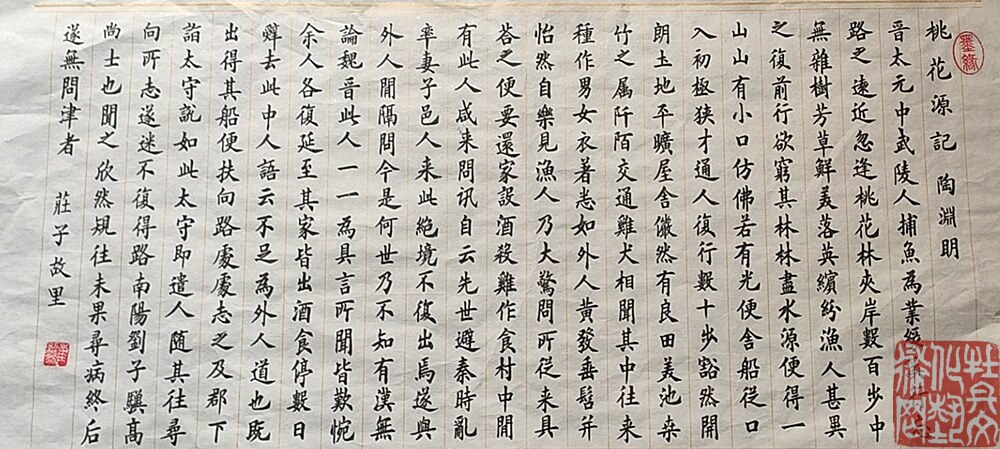 墨緣
桃花源記 陶淵明
晉太元中武陵人捕魚為業緣
路之遠近忽逢桃花林夾岸數百步中
無雜樹芳草鮮美落英繽紛漁人甚異
之復前行欲窮其林林盡水源便得一
山山有小口仿佛若有光便舍船從口
入初極狹才通人復行數十步豁然開
朗土地平曠屋舍儼然有良田美池桑
竹之属阡陌交通雞犬相聞其中往来
種作男女衣着悉如外人黄發垂髫并
怡然自樂見漁人乃大驚問所從来具
荅之便要還家設酒殺雞作食村中聞
有此人咸来問訊自云先世避秦時亂
率妻子邑人来此絶境不復出焉遂與
外人間隔問今是何世乃不知有漢無
論魏晉此人一一為具言所聞皆歎惋
余人各復延至其家皆出酒食停數日
辭去此中人語云不足為外人道也既
出得其船便扶向路處處志之及郡下
詣太守說如此太守即遣人随其往尋
向所志遂迷不復得路南陽劉子驥高
尚士也聞之欣然規往未果尋病終后
遂無問津者 莊子故里